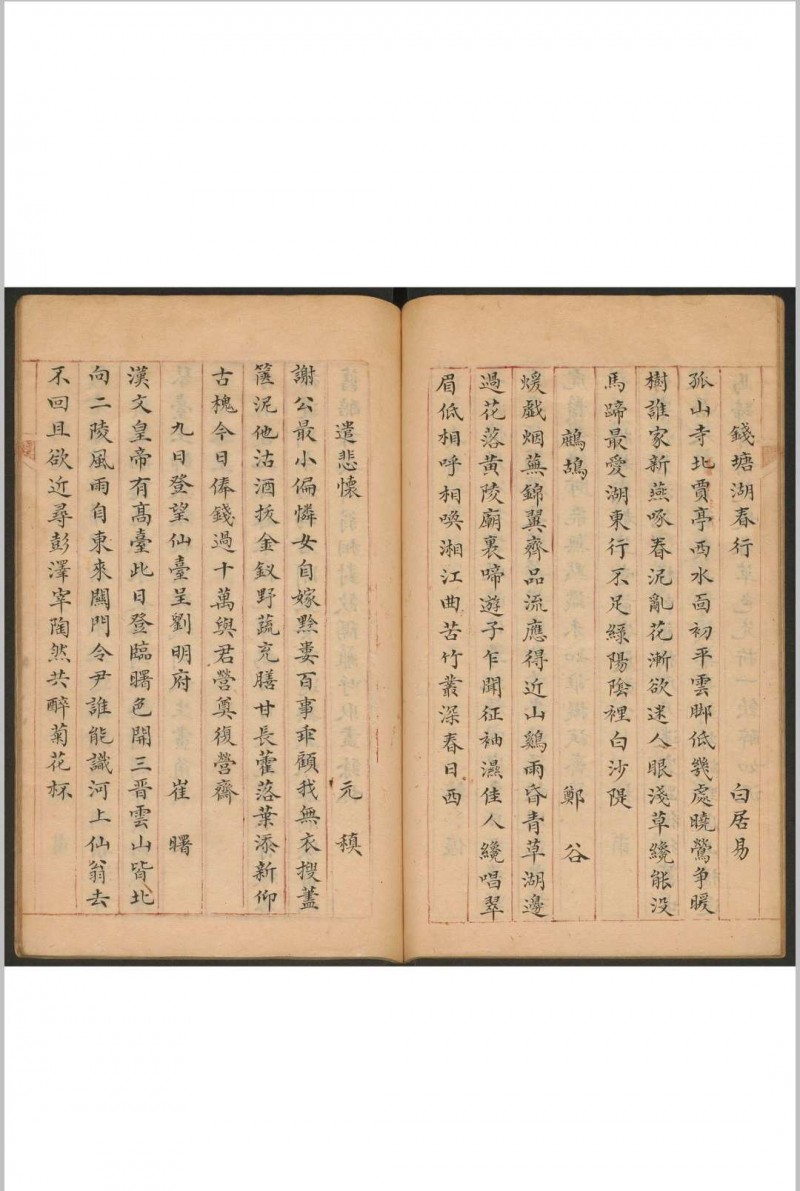 錢塘湖春行 白居易
孤山寺北賈亭西水面初平雲脚低幾處曉鶯争暖
樹誰家新燕啄春泥亂花漸欲迷人眼淺草纔能没
馬蹄最愛湖東行不足綠陽陰裡白沙隄
鷓鴣 鄭谷
煖戲烟蕪錦翼齊品流應得近山鷄雨昏青草湖邊
過花落黄陵廟裏啼遊子乍聞征袖濕佳人纔唱翠
眉低相呼相喚湘江曲苦竹叢深春日西
遣悲懷 元稹
謝公最小偏憐女自嫁黔婁百事乖顧我無衣搜藎
篋泥他沽酒拔金釵野蔬充膳甘長藿落葉添新仰
古槐今日俸錢過十萬與君營奠復營齋
九日登望仙臺呈劉明府 崔曙
漢文皇帝有髙臺此日登臨曙色開三晋雲山皆北
向二陵風雨自東來關門令尹誰能識河上仙翁去
不回且欲近尋彭澤宰陶然共醉菊花杯